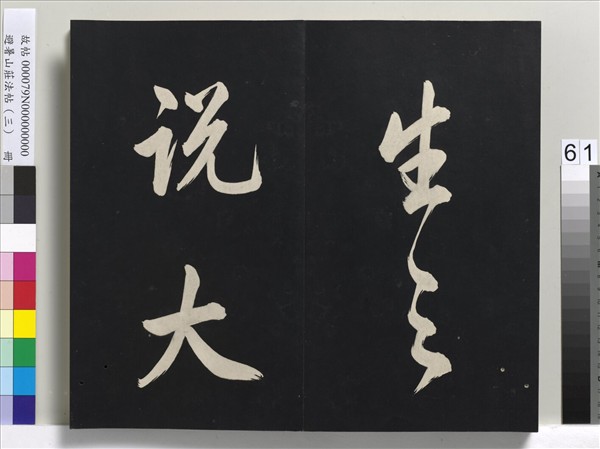 生之
说大
故帖 000079N000000000
避暑山莊法帖（三） 冊
61